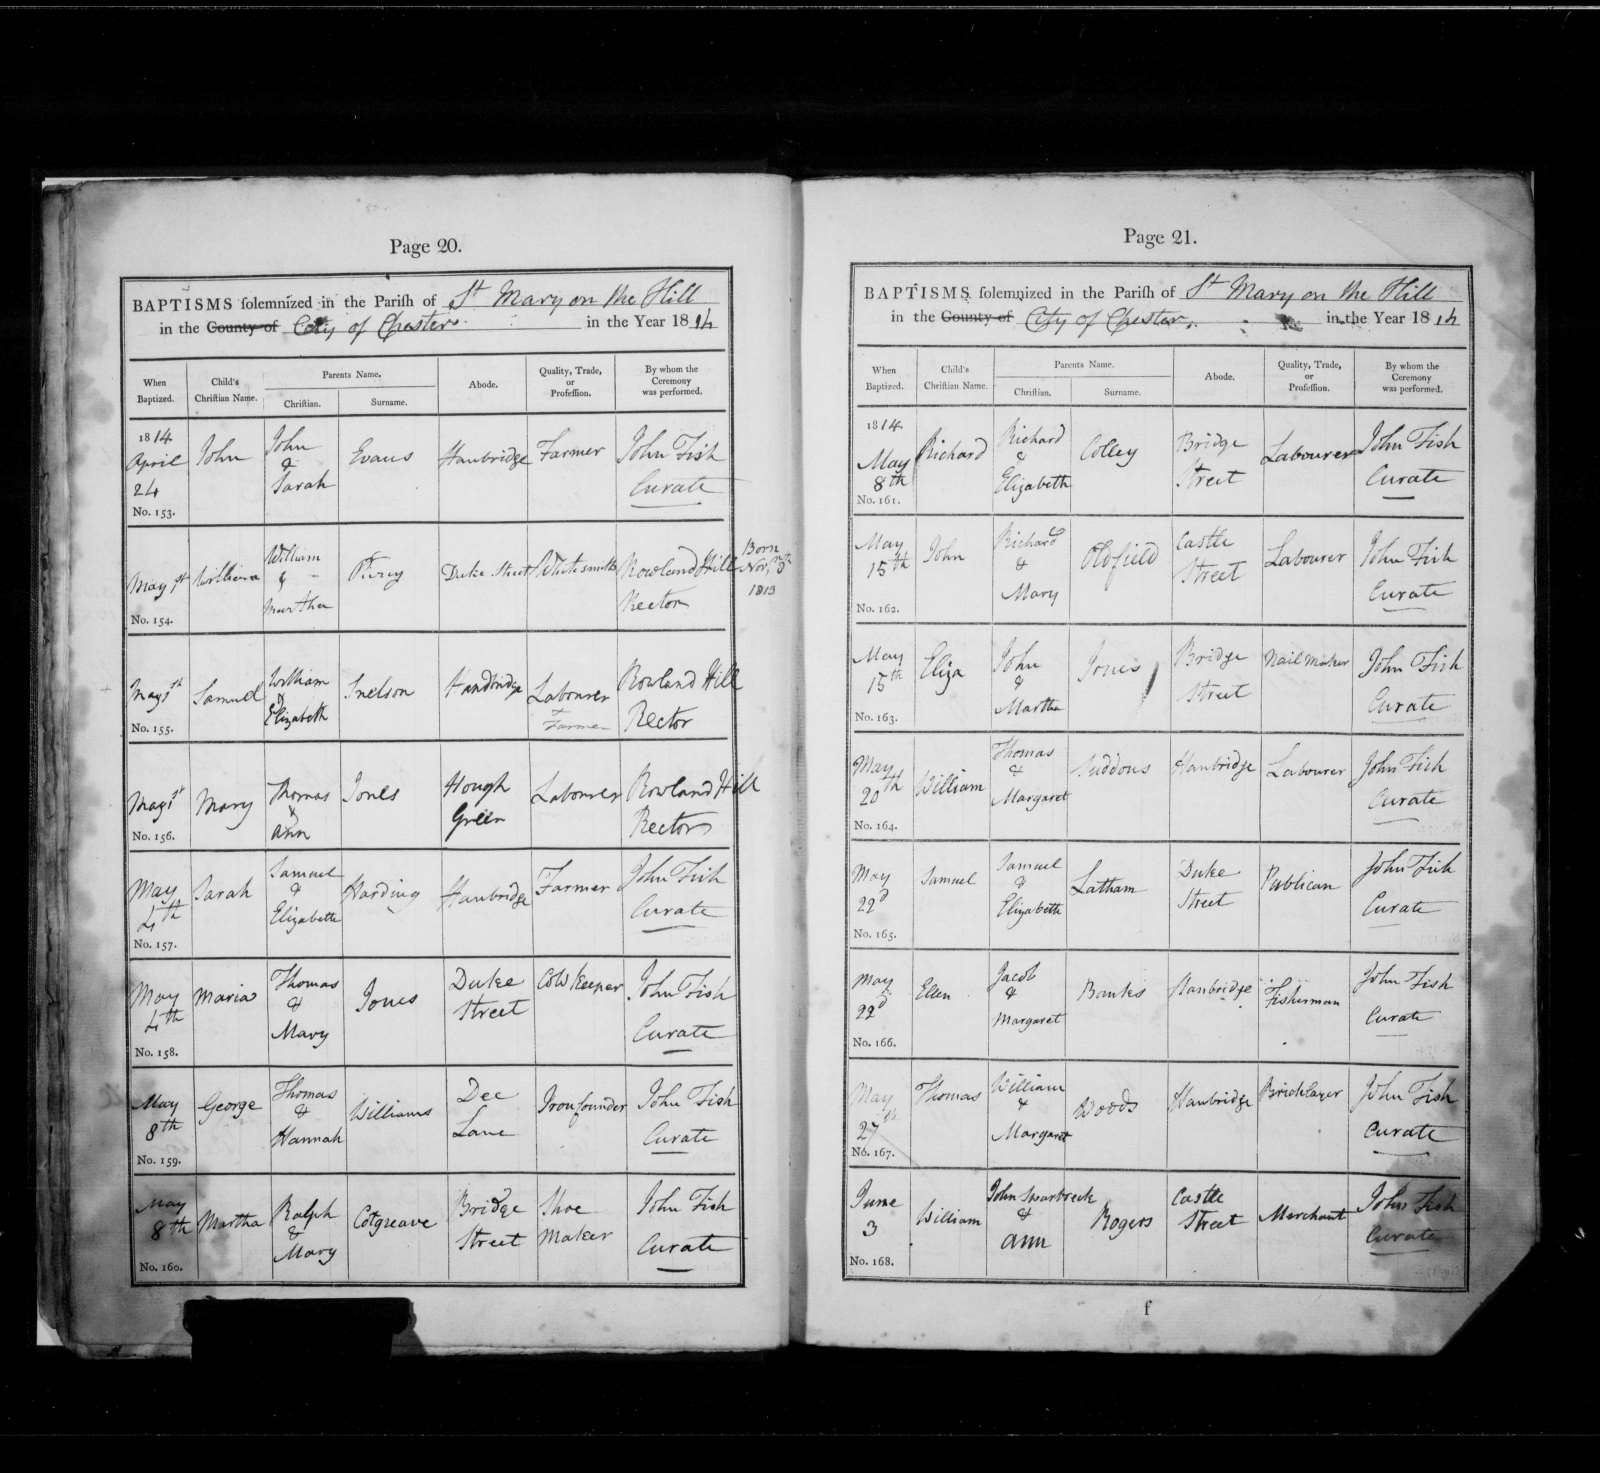 Page 20.
BAPTISMS solemnized in the Parish of St Mary on the Hill
in the County of City of Chester in the Year 1814
When Baptized. Child's Christian Name. Parents Name. Christian. Surname. Abode. Quality, Trade, or Profession. By whom the Ceremony was performed.
1814 April 24 No. 153. John John & Sarah Evans Hanbridge Farmer John Fish Curate
May 1st No. 154. William William & Marther Duke Street Whitesmith Rowland Hill Rector Born Nov. 1813
May 1st No. 155. Samuel William & Elizabeth Snelson Handbridge Labourer + Farmer Rowland Hill Rector
May 1st No. 156. Mary Thomas & Ann Jones Hough Green Labourer Rowland Hill Rector
May 4th No. 157. Sarah Samuel & Elizabeth Harding Hanbridge Farmer John Fish Curate
May 4th No. 158. Maria Thomas & Mary Jones Duke Street Cowkeeper John Fish Curate
May 8th No. 159. George Thomas & Hannah Williams Dee Lane Ironfounder John Fish Curate
May 8th No. 160. Martha Ralph & Mary Cotgreave Bridge Street Shoe Maker John Fish Curate
Page 21.
BAPTISMS solemnized in the Parish of St Mary on the Hill
in the County of City of Chester. in the Year 1814
When Baptized. Child's Christian Name. Parents Name. Christian. Surname. Abode. Quality, Trade, or Profession. By whom the Ceremony was performed.
1814. May 8th No. 161. Richard Richard & Elizabeth Colley Bridge Street Labourer John Fish Curate
May 15th No. 162. John Richard & Mary Oldfield Castle Street Labourer John Fish Curate
May 15th No. 163. Eliza John & Martha Jones Bridge Street Nail Maker John Fish Curate
May 20th No. 164. William Thomas & Margaret Siddons Hanbridge Labourer John Fish Curate
May 22d No. 165. Samuel Samuel & Elizabeth Latham Duke Street Publican John Fish Curate
May 22d No. 166. Ellen Jacob & Margaret Banks Hanbridge Fisherman John Fish Curate
May 27th No. 167. Thomas William & Margaret Woods Hanbridge Bricklayer John Fish Curate
June 3 No. 168. William John Sparbreck & Ann Rogers Castle Street Merchant John Fish Curate
f